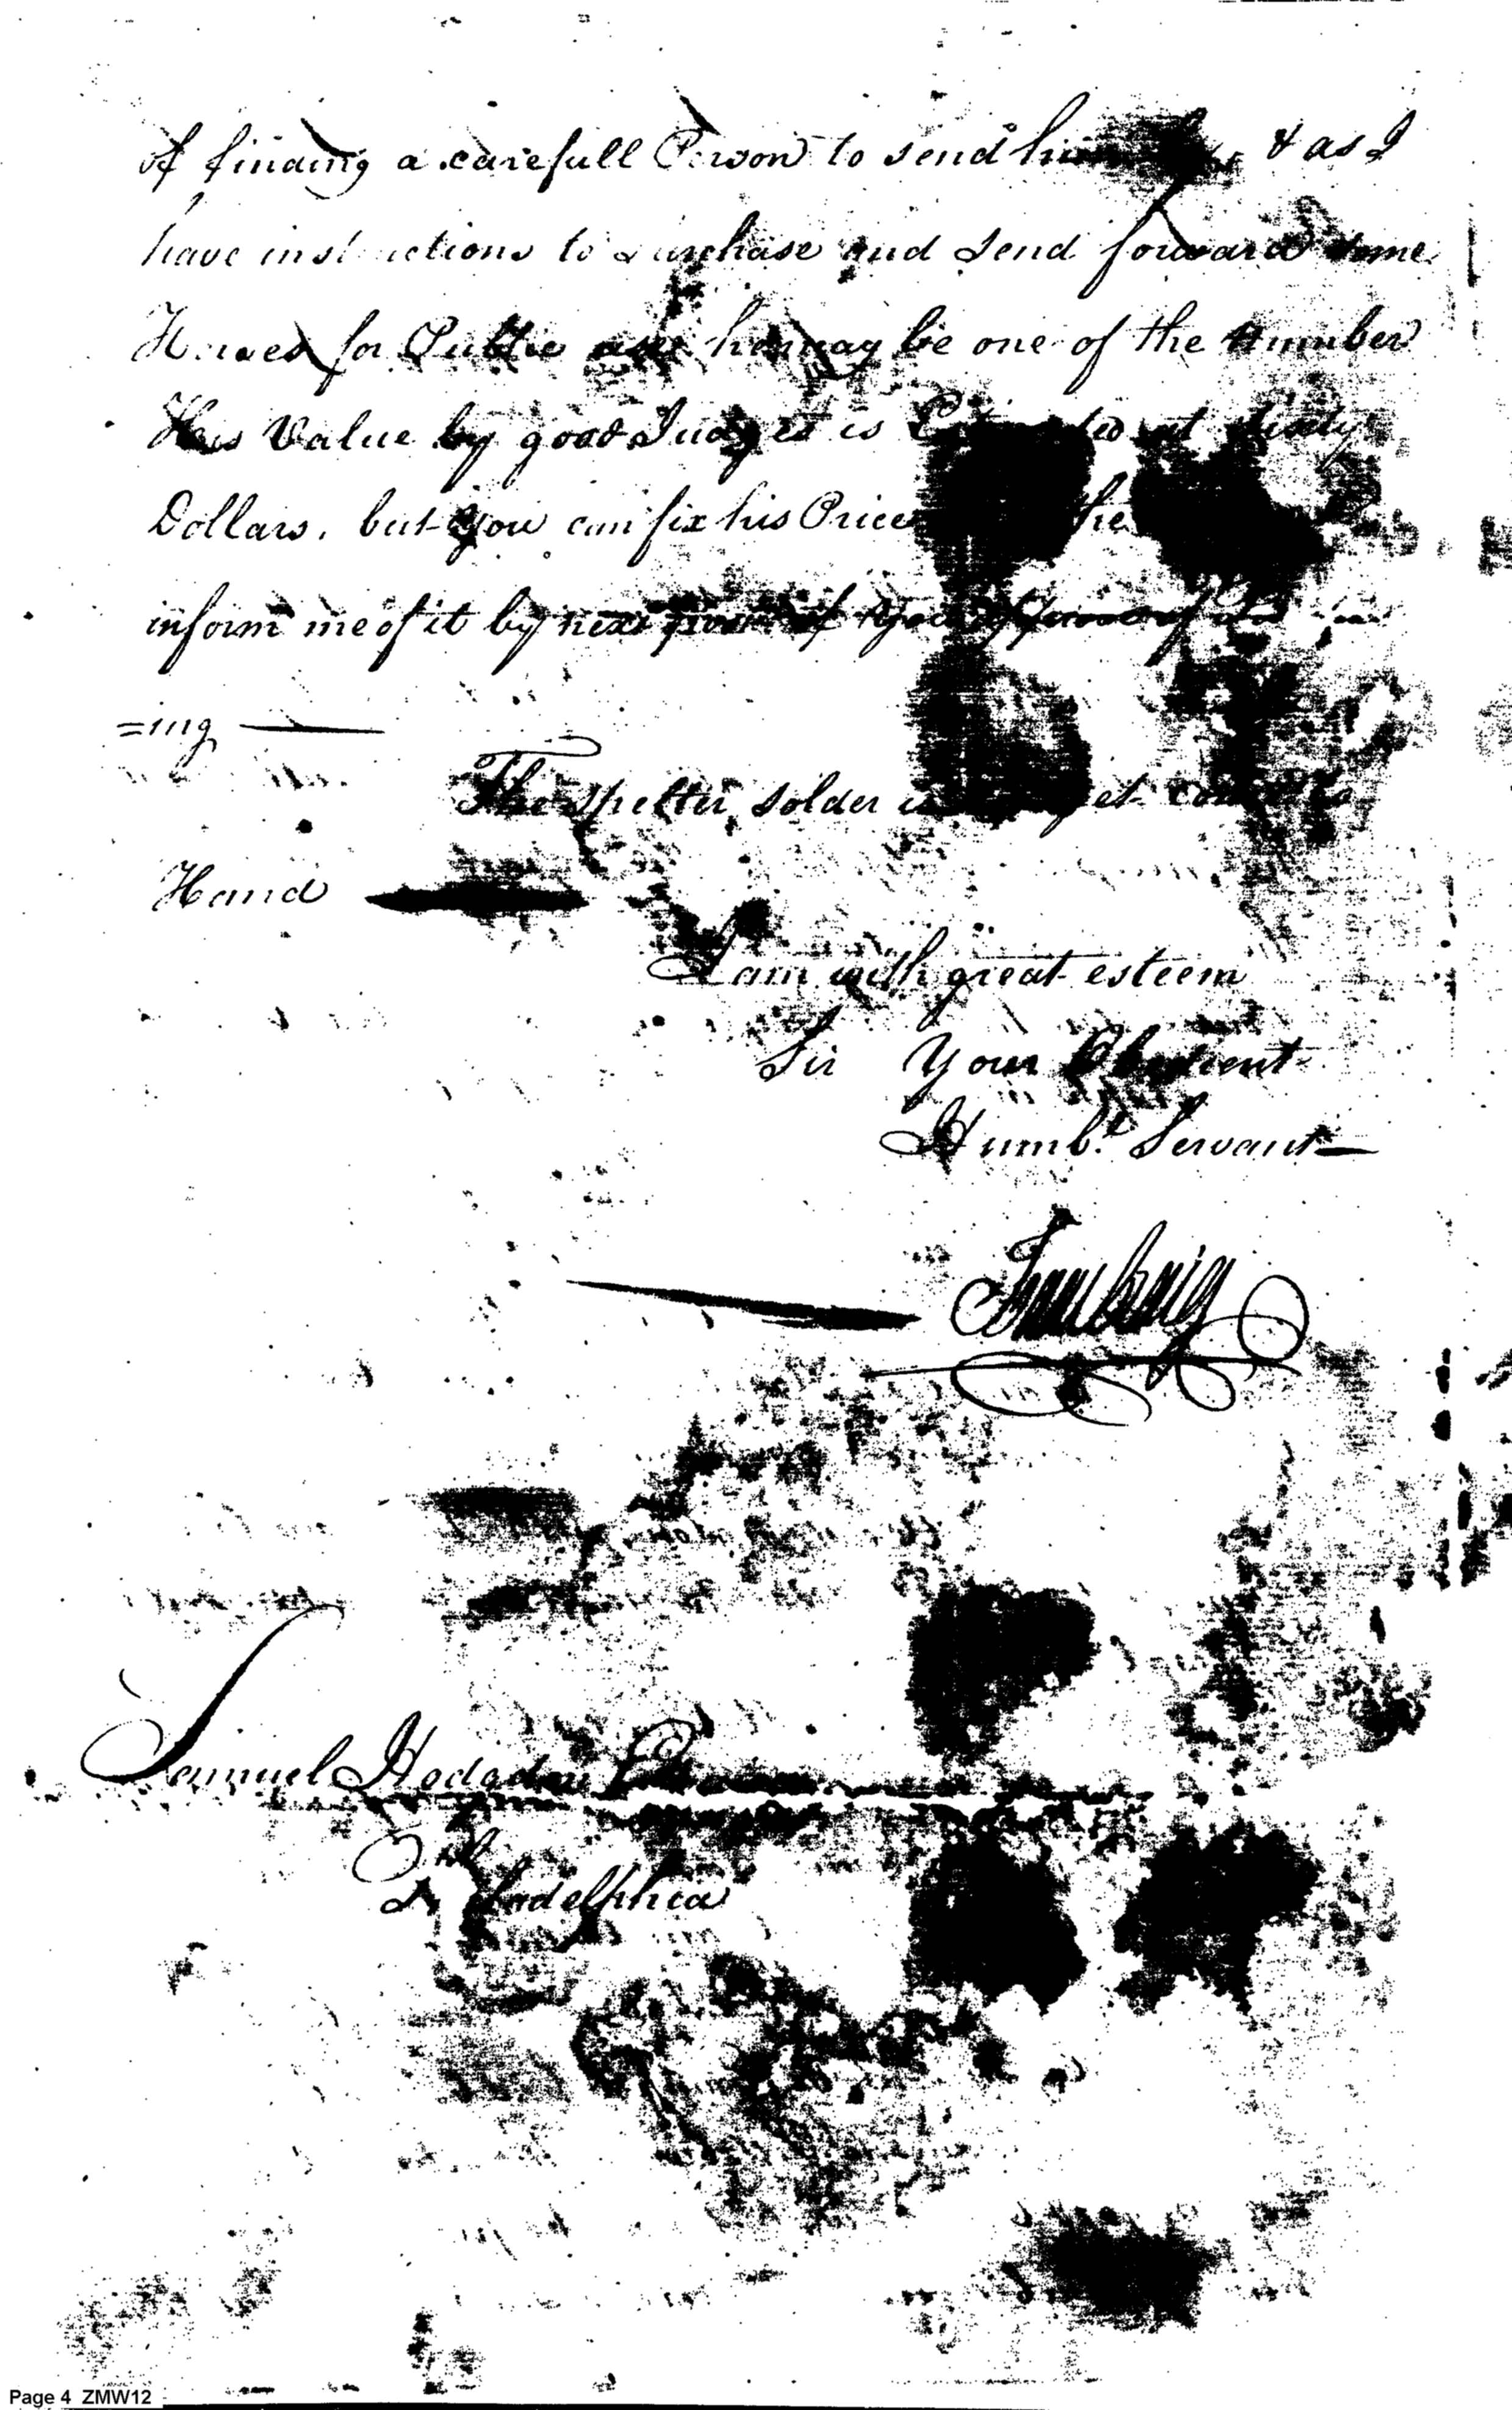 of finding a carefull Person to send him & as I
have instructions to purchase and send forward some
Horses for Public use he may be one of the Number
His Value by good Judges is Estimated at
Dollars, but you can fix his Price the
inform me of it by next post if you approve of
=ing
The spelter solder is yet
Hand
I am with great esteem
Sir Your Obedient
Humb.l Servant
Isaac Craig
Samuel Hodgdon
Philadelphia
Page 4 ZMW12